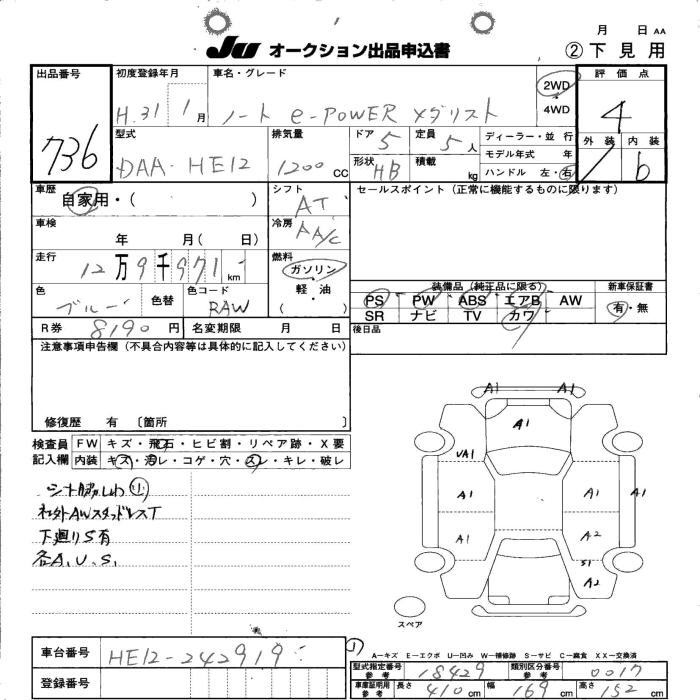 月 日 AA
JU オークション出品申込書 ②下見用
出品番号 初度登録年月 車名・グレード 2WD 評価点
736 H.31 1月 ノート e-POWER メダリスト 4WD 4
型式 排気量 ドア 5 定員 5人 ディーラー・並行 外装 内装
DAA-HE12 1200 CC 形状 HB 積載 kg モデル年式 年 ハンドル 左・右 b
車歴 自家用・( ) シフト AT セールスポイント(正常に機能するものに限ります)
車検 年 月( 日) 冷房 AA/C
走行 12万9千971 km 燃料 ガソリン・軽油 ( )
装備品(純正品に限る) 新車保証書
色 ブルー 色替 色コード RAW PS PW ABS エアB AW 有・無
SR ナビ TV カワ
R券 8190円 名変期限 月 日 後日品
注意事項申告欄(不具合内容等は具体的に記入してください)
修復歴 有 〔箇所 〕
検査員記入欄 FW キズ・飛石・ヒビ割・リペア跡・X要
内装 キズ・汚レ・コゲ・穴・スレ・キレ・破レ
社外AWスタッドレスT
下廻りS有
各A.U.S.
A1 A1
A1
UA1
A1 A1 A1
A1 A2
S1
A2
スペア
A-キズ E-エクボ U-凹み W-補修跡 S-サビ C-腐食 XX-交換済
車台番号 HE12-242919
登録番号
型式指定番号 参考 18429 類別区分番号 参考 0017
車庫証明用 参考 長さ 410cm 幅 169cm 高さ 152cm